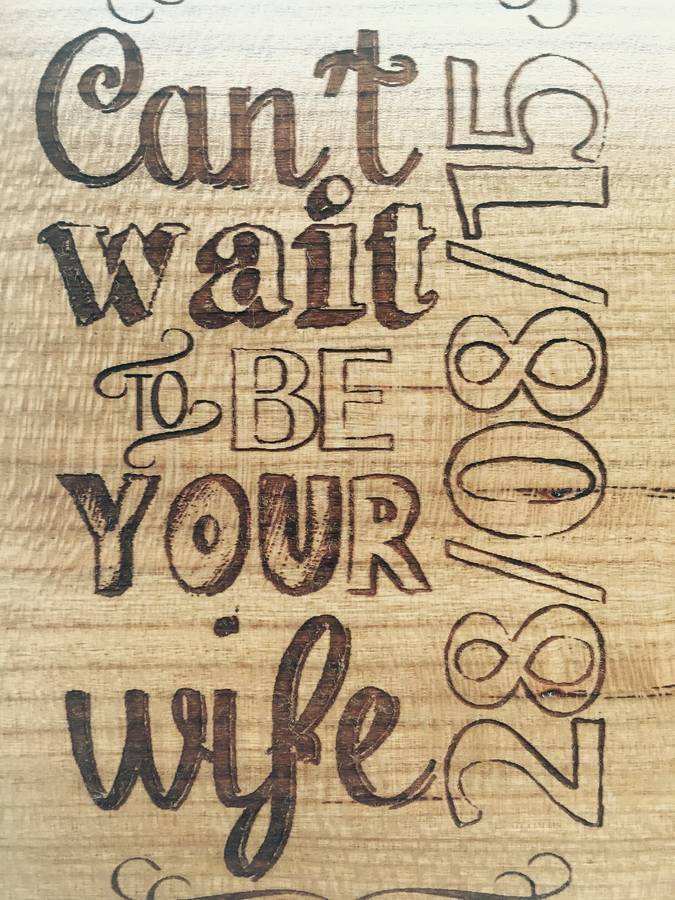 Can't
wait
TO BE
YOUR
wife
28/08/15